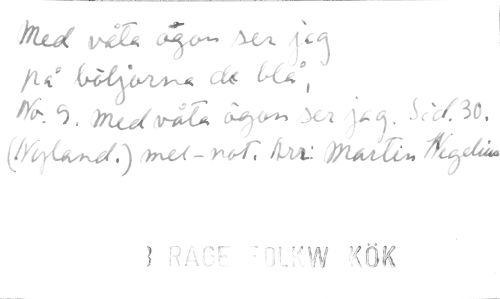 Med våta ögon ser jag
på böljorna de blå,
No. 9. Med våta ögon ser jag. Sid. 30.
(Nyland.) mel-not. Arr: Martin Wegelius
B RAGE FOLKW KÖK